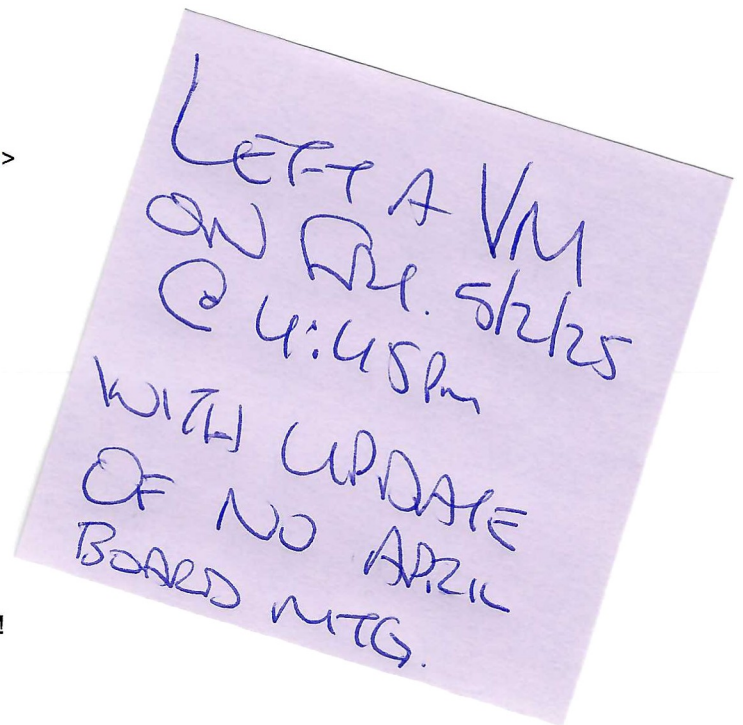 >
LEFT A VM
ON FRI. 5/2/25
@ 4:45pm
WITH UPDATE
OF NO APRIL
BOARD MTG.
!